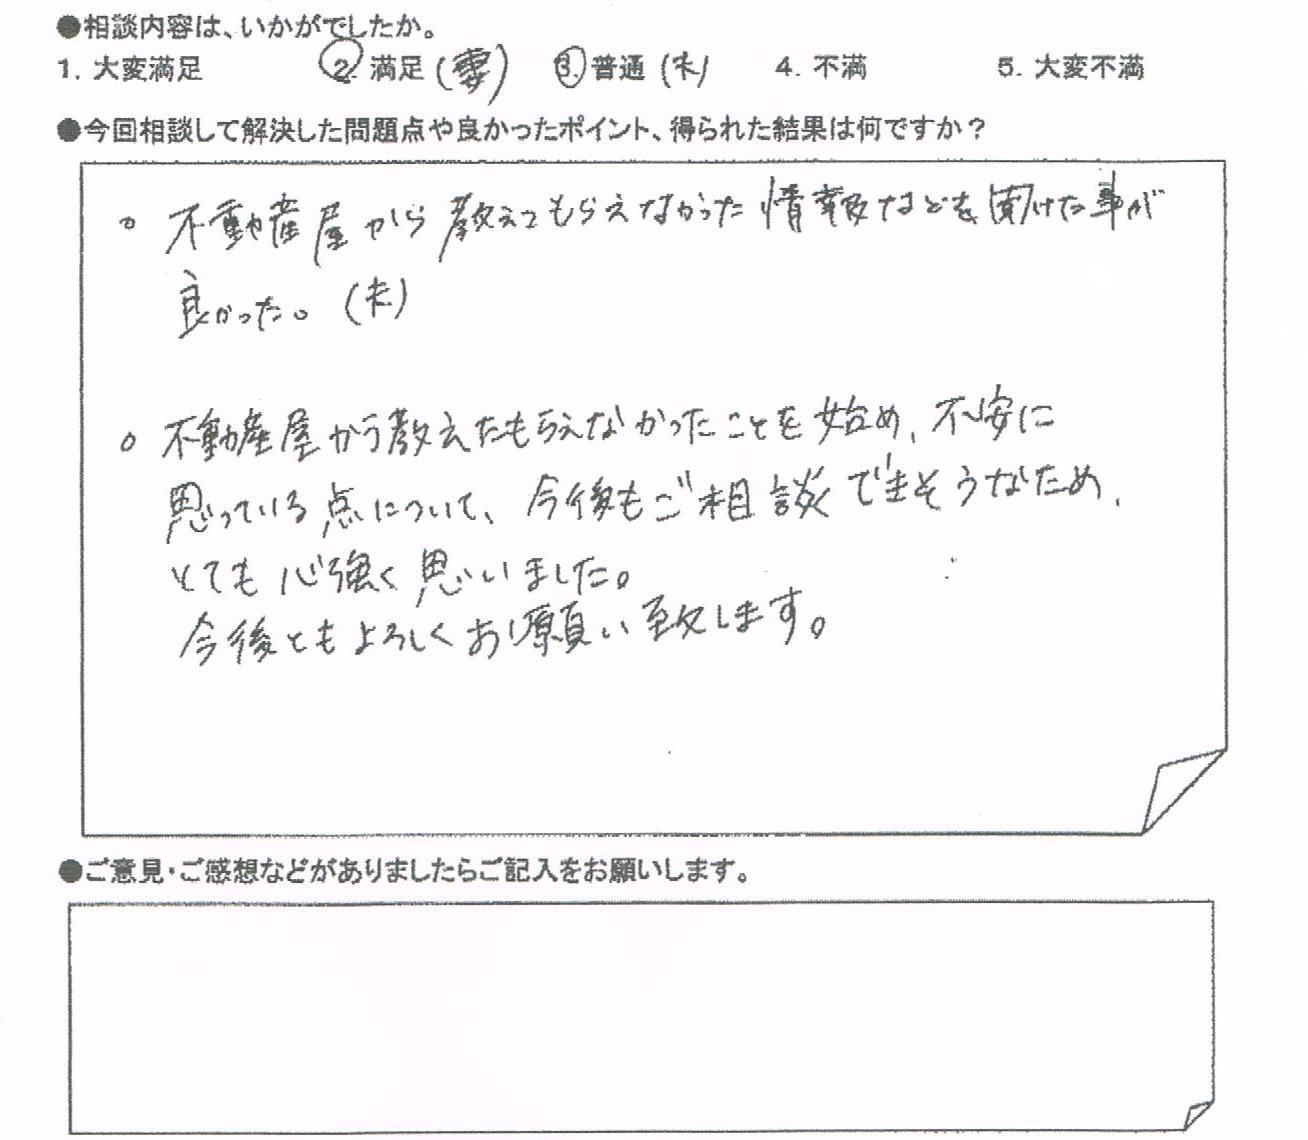 ●相談内容は、いかがでしたか。
1. 大変満足 2. 満足 (妻) 3. 普通 (夫) 4. 不満 5. 大変不満
●今回相談して解決した問題点や良かったポイント、得られた結果は何ですか?
○ 不動産屋から教えてもらえなかった情報などを聞けた事が
良かった。(夫)
○ 不動産屋から教えたもらえなかったことを始め、不安に
思っている点について、今後もご相談できそうなため、
とても心強く思いました。
今後ともよろしくお願い致します。
●ご意見・ご感想などがありましたらご記入をお願いします。